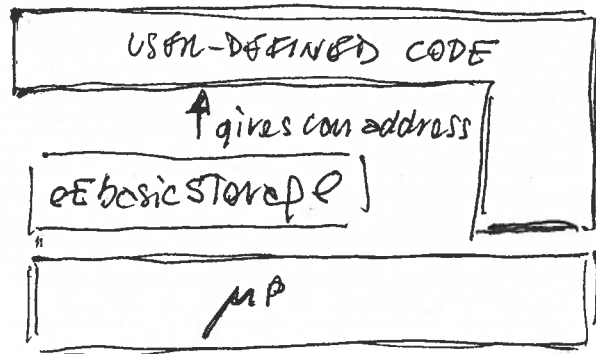 USER-DEFINED CODE
gives con address
eEbasicStorage
μP